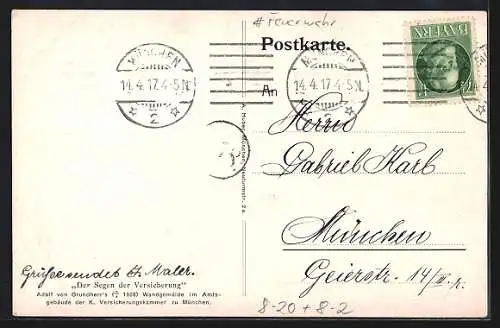 # Feuerwehr
Postkarte.
BAYERN
MÜNCHEN
14.4.17.4-5N.
2
MÜNCHEN
14.4.17.4-5N.
2
An
Herrn
Gabriel Karl
München
Geierstr. 14/III. r.
A. Huber, München, Neuturmstr. 2 a.
Grüße sendet A. Maler.
„Der Segen der Versicherung"
Adolf von Grundherr's († 1908) Wandgemälde im Amts-
gebäude der K. Versicherungskammer zu München.
8-20 + 8-2